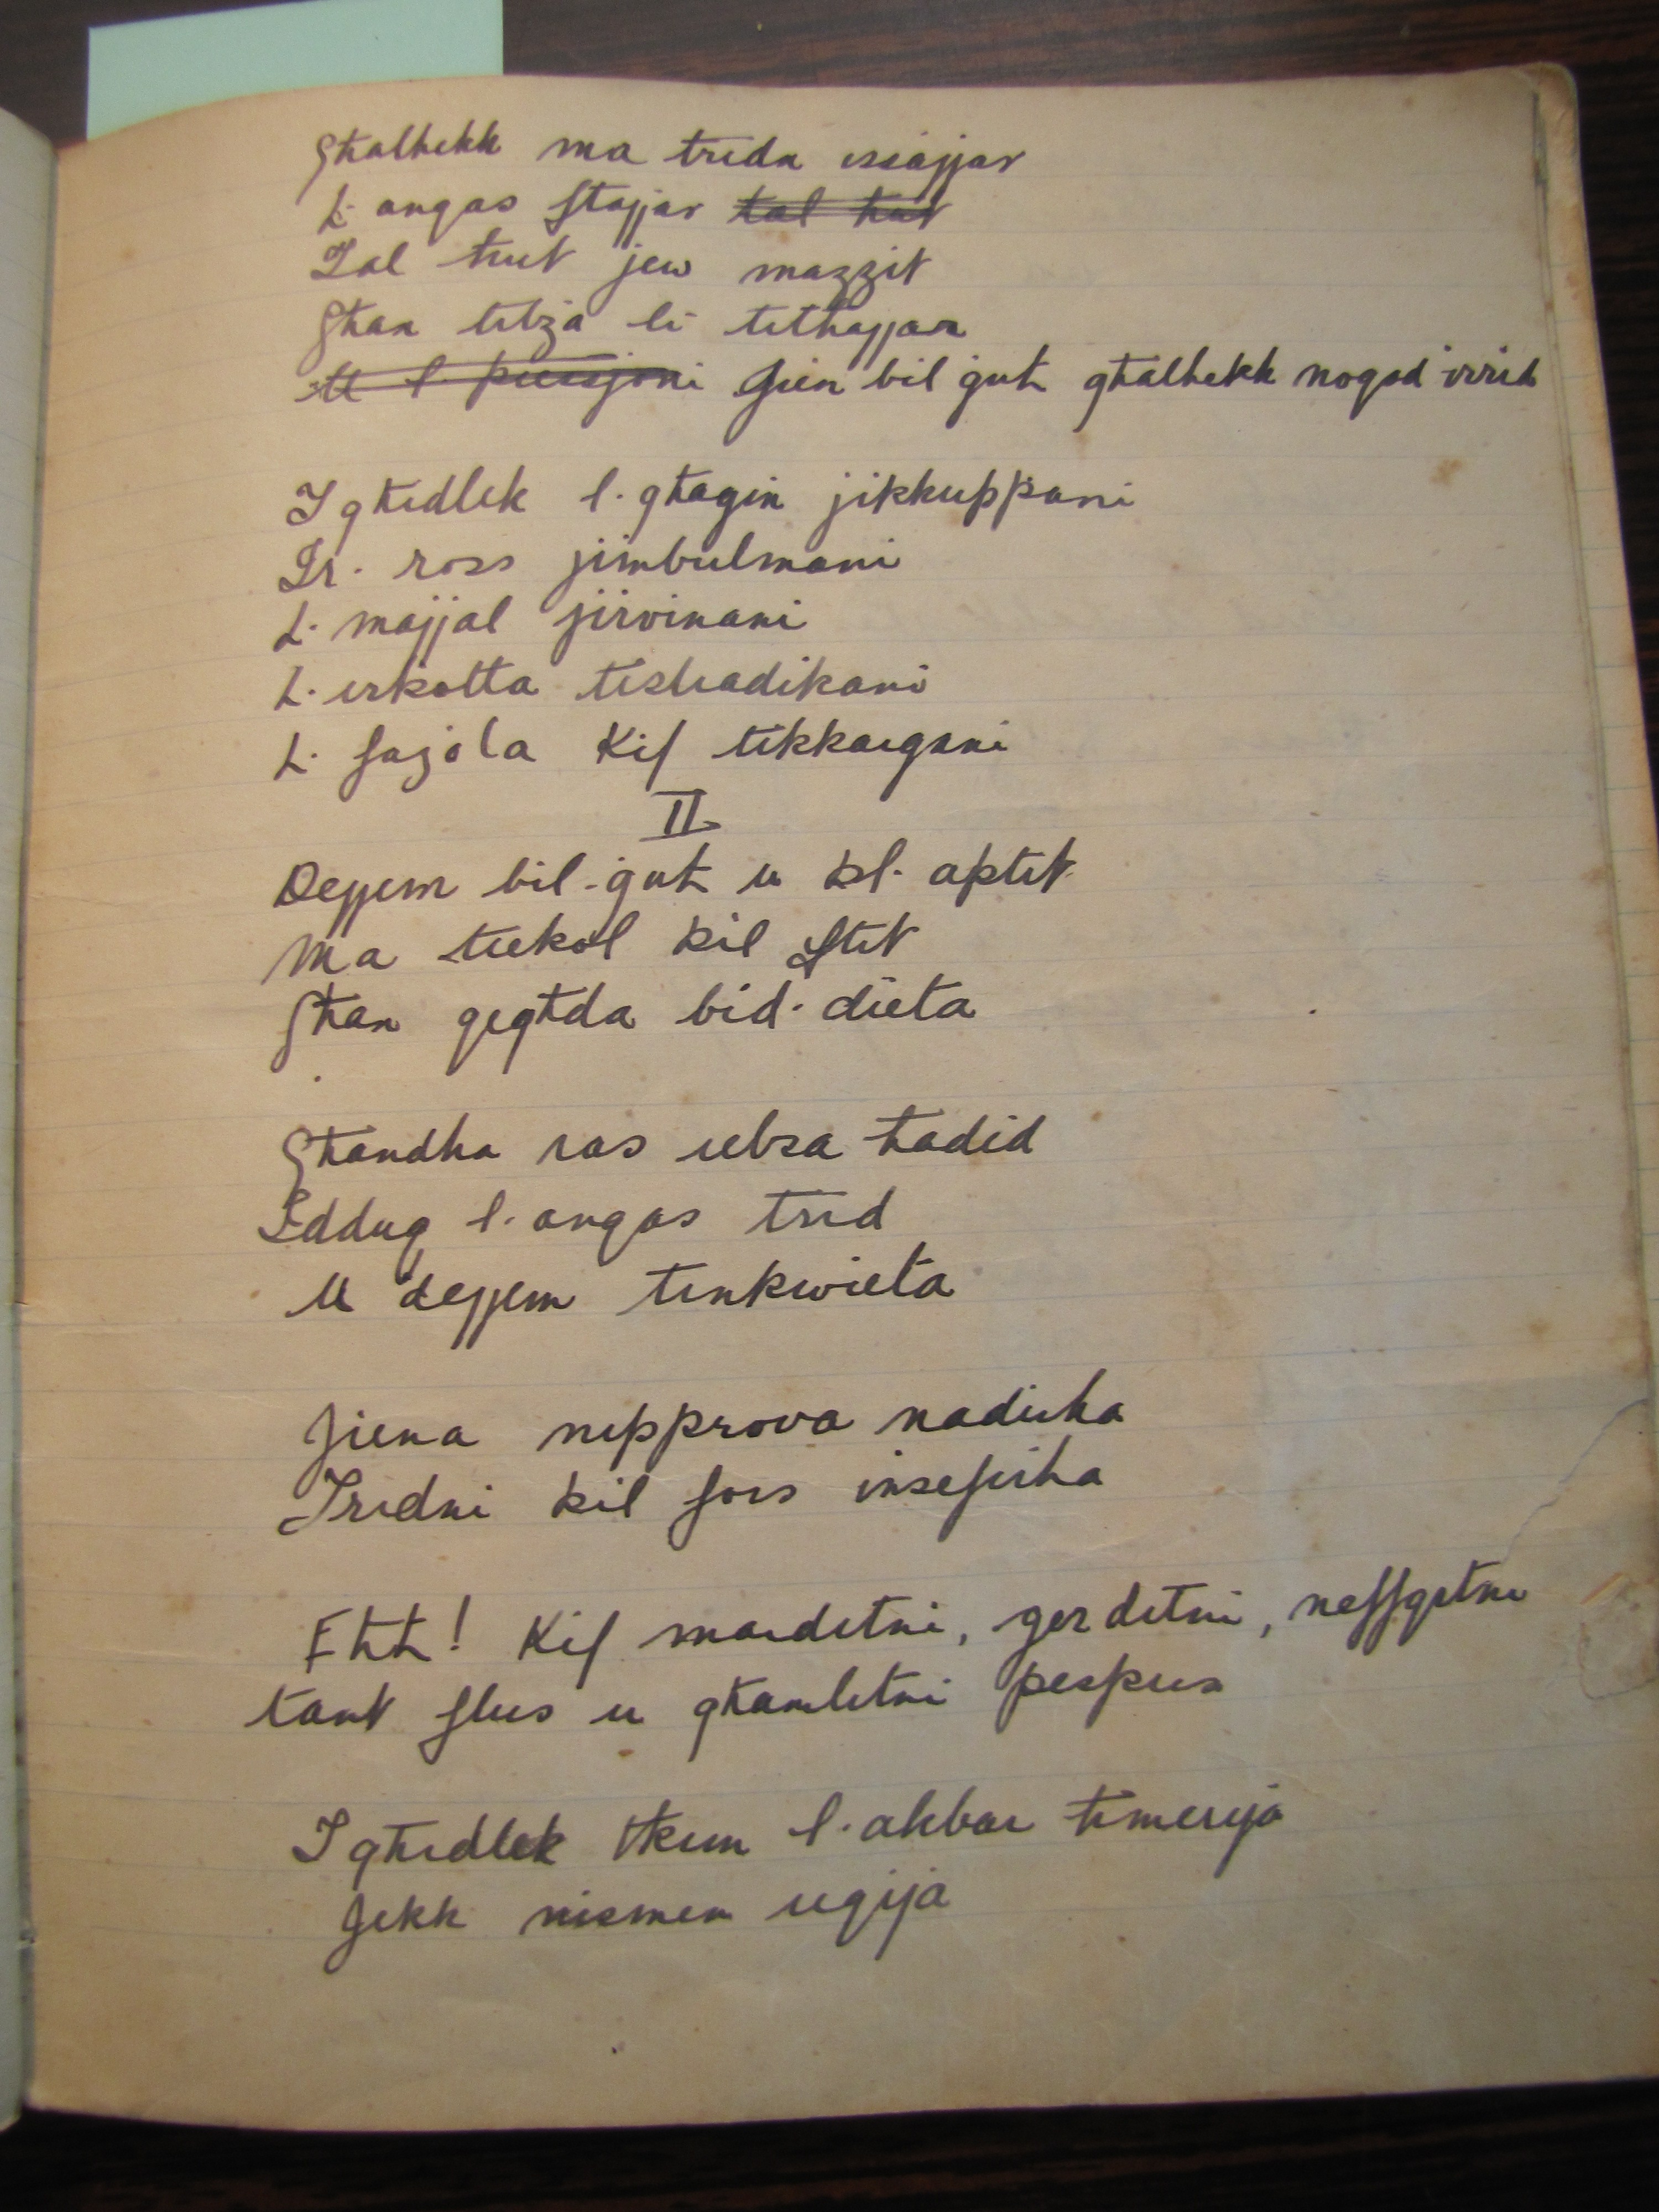 Għalhekk ma tridx issajjar
L-anqas stajjar ~~tal ħut~~
Tal ħut jew mazzit
Għax tibża li titħajjar
~~U l-pursjoni~~ Jien bil ġuħ għalhekk noqod irrid

Igħidlek l-għaġin jikkuppani
Ir-ross jimbulmani
L-majjal jirvinani
L-irkotta tisradikani
L-fażola Kif tikkargani
II
Dejjem bil-ġuħ u bl-aptit
Ma tiekol bil ftit
Għax qegħda bid-dieta

Għandha ras iebsa ħadid
Idduq l-anqas trid
U dejjem tinkwieta

Jiena nipprova nadieha
Iridni bil fors insefiħa

Eħħ! Kif marditni, ġerditni, neffqitni
tant flus u għamlitni pespus

Igħidlek tkun l-akbar timerija
Jekk nismen uġija